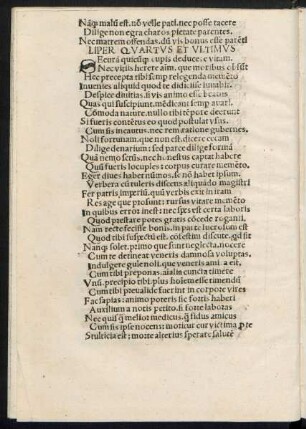 Nāq; malū est: nō velle pati. nec posse tacere
Dilige non egra charos pietate parentes.
Nec matrem offendas. dū vis bonus esse patēti
LIPER QVARTVS ET VLTIMVS
SEcurā quiesq; cupis deducere vitam.
Nec viciis herere aim. que moribus obsīt
Hec precepta tibi semp relegenda memēto
Inuenies aliquid quod te didicisse iuuabit.
Despice diuitias. si vis animo esse beatus
Quas qui suscipiunt. mēdicant semp auari.
Cōmoda nature nullo tibi tēpore derunt
Si fueris contētus eo quod postulat vsus.
Cum sis incautus. nec rem ratione gubernes.
Noli fortunam. que non est. dicere cecam
Dilige denarium: sed parce dilige formā
Quā nemo sctūs. nec honestus captat habere
Quū fueris locuples corpus curare memēto.
Eger diues habet nūmos. se nō habet ipsum.
Verbera cū tuleris discens aliquādo magistri
Fer patris imperiū. quū verbis exit in iram
Res age que prosunt: rursus vitare memēto
In quibus error inest: nec spes est certa laboris
Quod prestare potes gratis cōcede roganti.
Nam recte fecisse bonis. in parte lucrorum est
Quod tibi suspectū est. cōfestim discute. qd sit
Nanq; solet. primo que sunt neglecta. nocere
Cum te detineat veneris damnosa voluptas.
Indulgere gule noli. que ventris amica est.
Cum tibi preponas. aīalia cuncta timere
Vnū precipio tibi. plus hoīem esse timendū
Cum tibi preualide fuerint in corpore vires
Fac sapias: animo poteris sic fortis haberi
Auxilium a notis petito. si forte laboras
Nec quisq̄ melior medicus. q̄ fidus amicus
Cum sis ipse nocens: moritur cur victima p te
Stulticia est: morte alterius sperare salutē